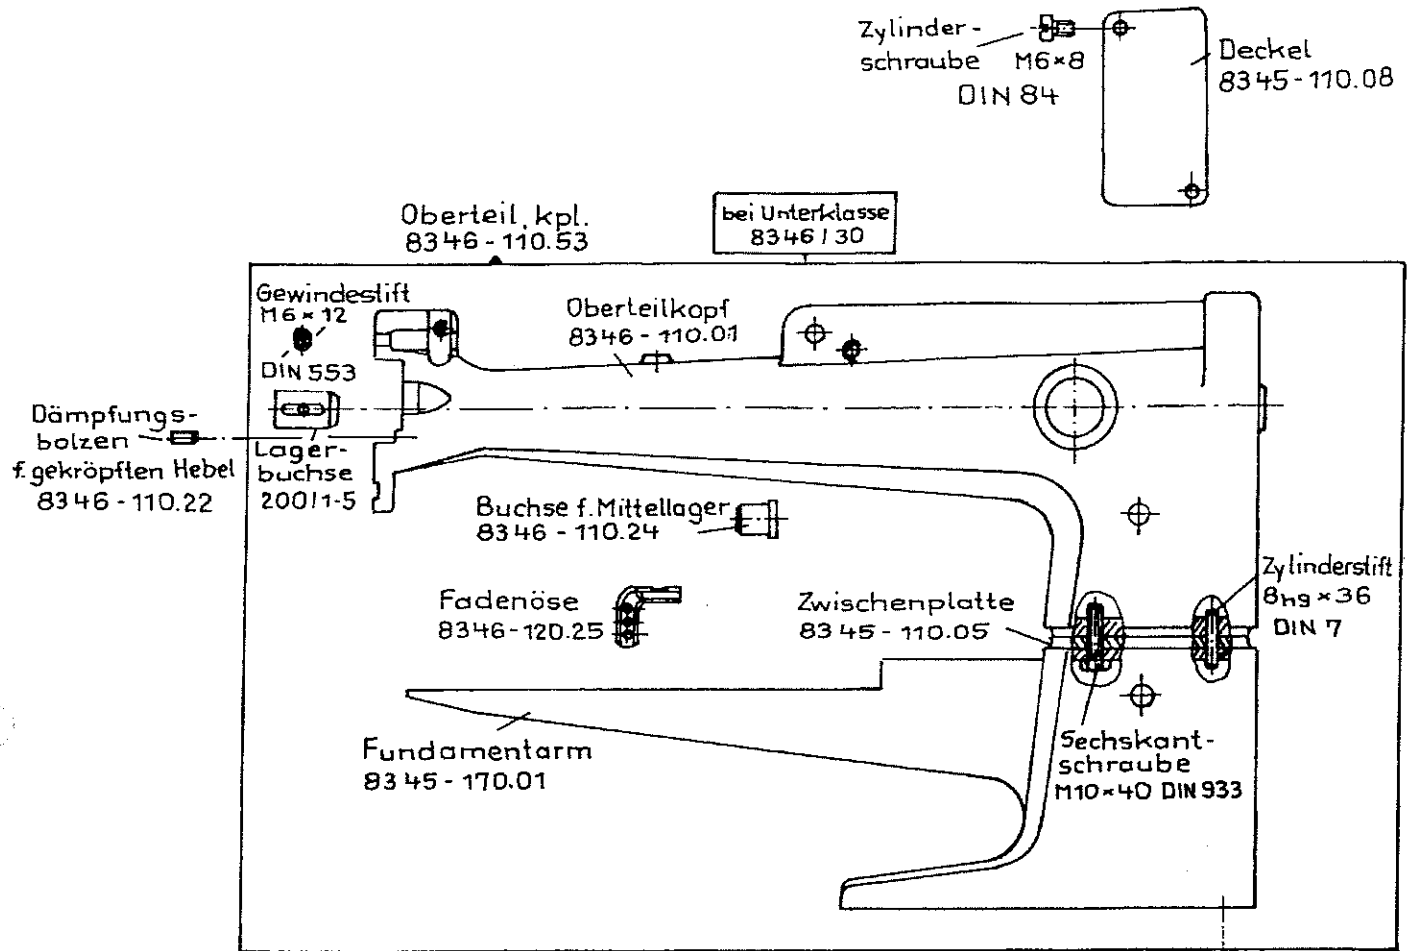 Zylinder-
schraube M6×8
DIN 84
Deckel
8345-110.08
Oberteil, kpl.
8346-110.53
bei Unterklasse
8346/30
Gewindestift
M6×12
DIN 553
Oberteilkopf
8346-110.01
Dämpfungs-
bolzen
f. gekröpften Hebel
8346-110.22
Lager-
buchse
200/1-5
Buchse f. Mittellager
8346-110.24
Fadenöse
8346-120.25
Zwischenplatte
8345-110.05
Zylinderstift
8h9×36
DIN 7
Fundamentarm
8345-170.01
Sechskant-
schraube
M10×40 DIN 933